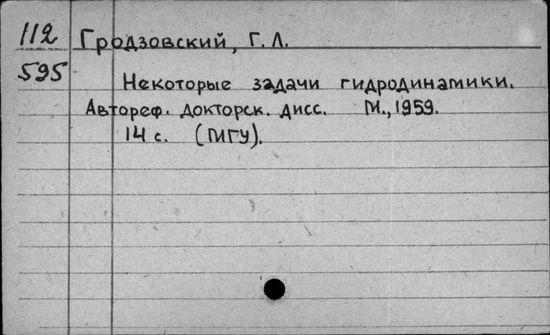 112 Гродзовский, Г. Л.
595
Некоторые задачи гидродинамики.
Автореф. докторск. дисс. М., 1959.
14 с. (МГУ).